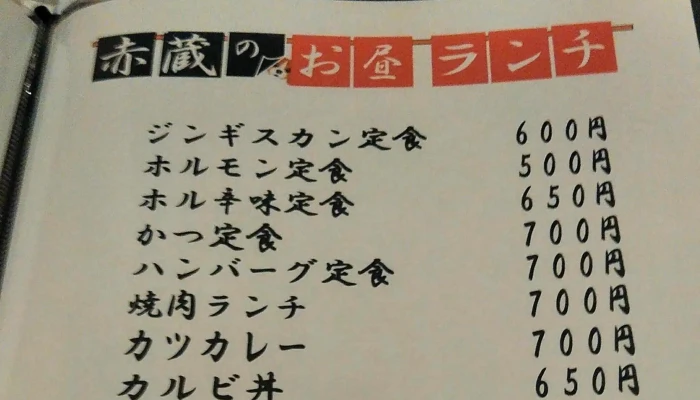 赤蔵のお昼ランチ
ジンギスカン定食 600円
ホルモン定食 500円
ホル辛味定食 650円
かつ定食 700円
ハンバーグ定食 700円
焼肉ランチ 700円
カツカレー 700円
カルビ丼 650円